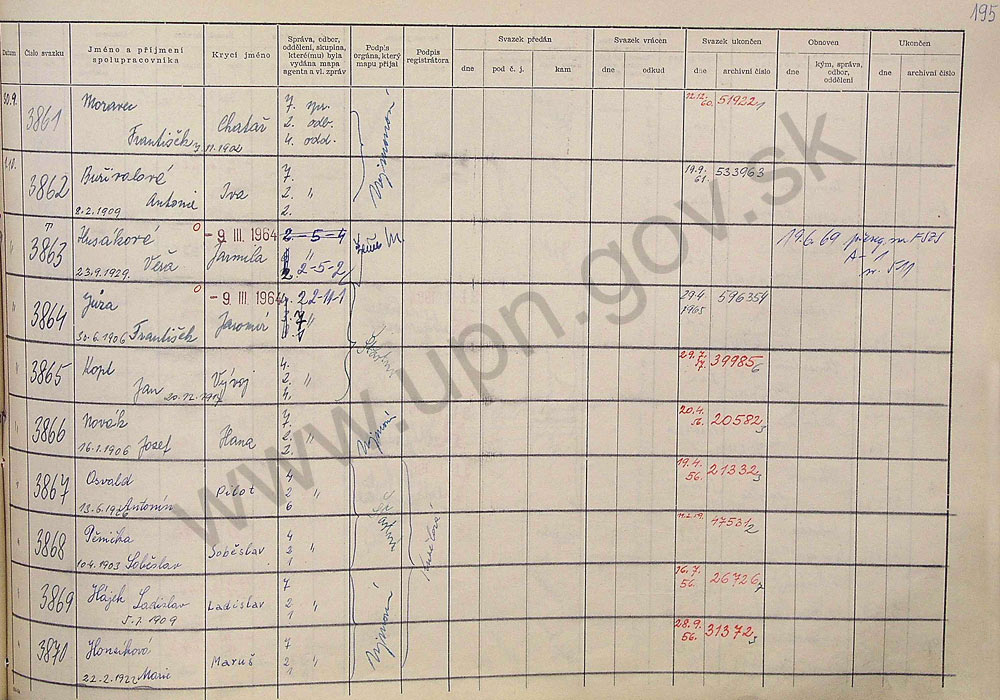 195
Datum
Číslo svazku
Jméno a příjmení
spolupracovníka
Krycí jméno
Správa, odbor,
oddělení, skupina,
které(mu) byla
vydána mapa
agenta a vl. zpráv
Podpis
orgána, který
mapu přijal
Podpis
registrátora
Svazek předán
dne
pod č. j.
kam
Svazek vrácen
dne
odkud
Svazek ukončen
dne
archivní číslo
Obnoven
dne
kým, správa,
odbor,
oddělení
Ukončen
dne
archivní číslo
30.9.
3861
Moravec
František
7.11.1902
Chatař
7. spr.
2. odb.
4. odd.
22.12.
60.
51922
1
1.10.
3862
Buřivalové
Antonie
8.2.1909
Iva
7.
2. "
2.
19.9.
61.
533963
3863
Husákové
Věra
23.9.1929.
- 9. III. 1964
Jarmila
2-5-4
2-5-2
19.6.69
A-1
3864
Jůza
30.6.1906 František
- 9. III. 1964
Jaromír
22-11-1
29.4.
1965
596354
3865
Kopl
Jan
Vývoj
4.
2. "
4.
29.7.
39985
6
3866
Novák
16.1.1906 Josef
Hana
7.
2. "
2.
20.4.
56.
20582
3
3867
Osvald
Antonín
Pilot
4
2 "
6
19.4.
56.
21332
3
3868
Pěnička
10.4.1903 Soběslav
Soběslav
4
3 "
1
47531
2
3869
Hájek Ladislav
5.7.1909
Ladislav
7
2 "
1
16.7.
56.
26726
7
3870
Honzíková
22.2.1922 Marie
Maruš
7
2 "
1
28.9.
56.
31372
3
www.upn.gov.sk